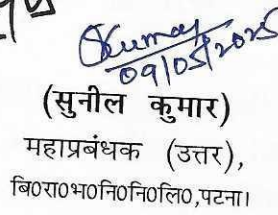 Skumar
09/05/2025
(सुनील कुमार)
महाप्रबंधक (उत्तर),
बि०रा०भ०नि०नि०लि०,पटना।